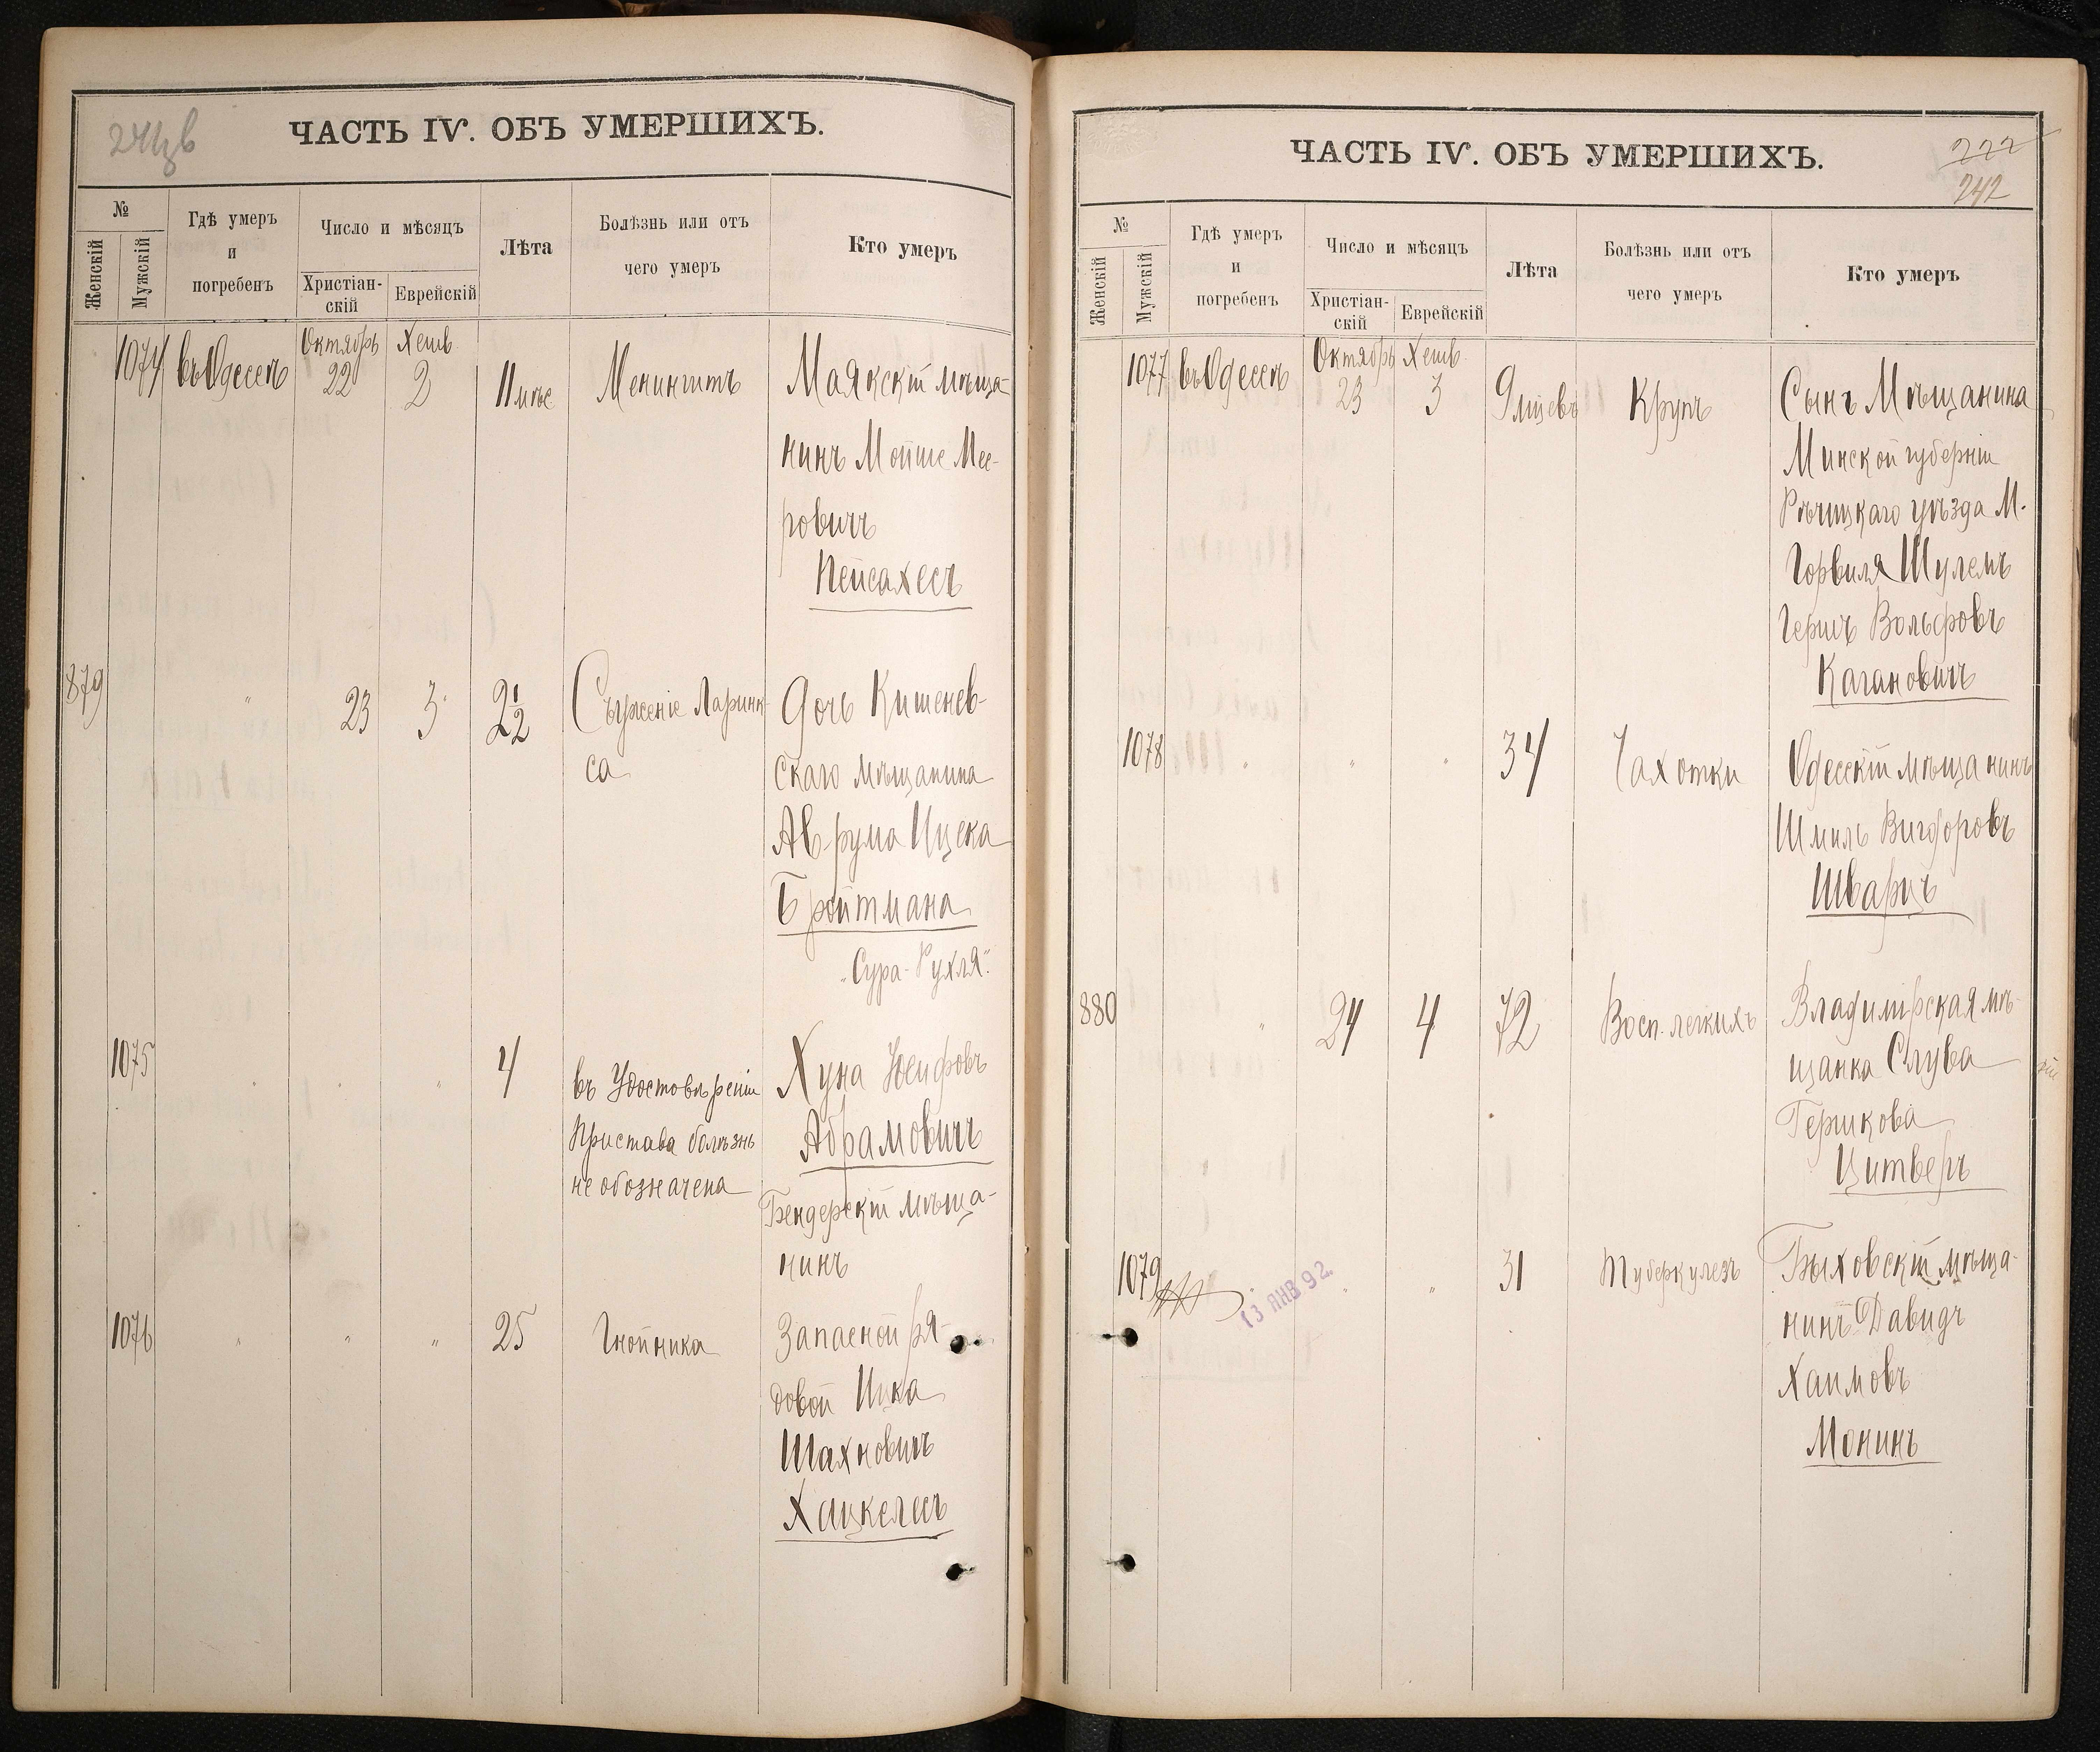 ЧАСТЬ IV. ОБЪ УМЕРШИХЪ.
№
Женскій
Мужскій
Гдѣ умеръ
и
погребенъ
Число и мѣсяцъ
Христіан-
скій
Еврейскій
Лѣта
Болѣзнь или отъ
чего умеръ
Кто умеръ
1074 въ Одессѣ Октябрь 22 Хешв. 2 11 мѣс Менингитъ Маякскій мѣща-
нинъ Мойше Мее-
ровичъ
Пейсахесъ
879 " 23 3 2½ Съуженіе Ларинк- Дочь Кишенев-
са скаго мѣщанина
Аврума Ицека
Бройтмана
"Сура-Рухля".
1075 " " " 4 въ Удостовѣреніи Хуна
Пристава болѣзнь Абрамовичъ
не обозначена Бендерскій мѣща-
нинъ
1076 " " " 25 Гнойника Запасной ря-
довой Ицка
Шахновичъ
Хацкелесъ
ЧАСТЬ IV. ОБЪ УМЕРШИХЪ.
222
242
№
Женскій
Мужскій
Гдѣ умеръ
и
погребенъ
Число и мѣсяцъ
Христіан-
скій
Еврейскій
Лѣта
Болѣзнь или отъ
чего умеръ
Кто умеръ
1077 въ Одессѣ Октябрь 23 Хешв. 3 9 Крупъ Сынъ Мѣщанина
Минской губерніи
Рѣчицкаго уѣзда М.
Горвиля Шулемъ
Гершъ Вольфовъ
Кагановичъ
1078 " " " 34 Чахотки Одесскій мѣщанинъ
Шмиль Вигдоровъ
Шварцъ
880 " 24 4 72 Восп. легкихъ Владимірская мѣ-
щанка Слува
Гершкова
Цитверъ
1079 " " " 31 Туберкулезъ Быховскій мѣща-
13 ЯНВ 92.
нинъ Давидъ
Хаимовъ
Монинъ